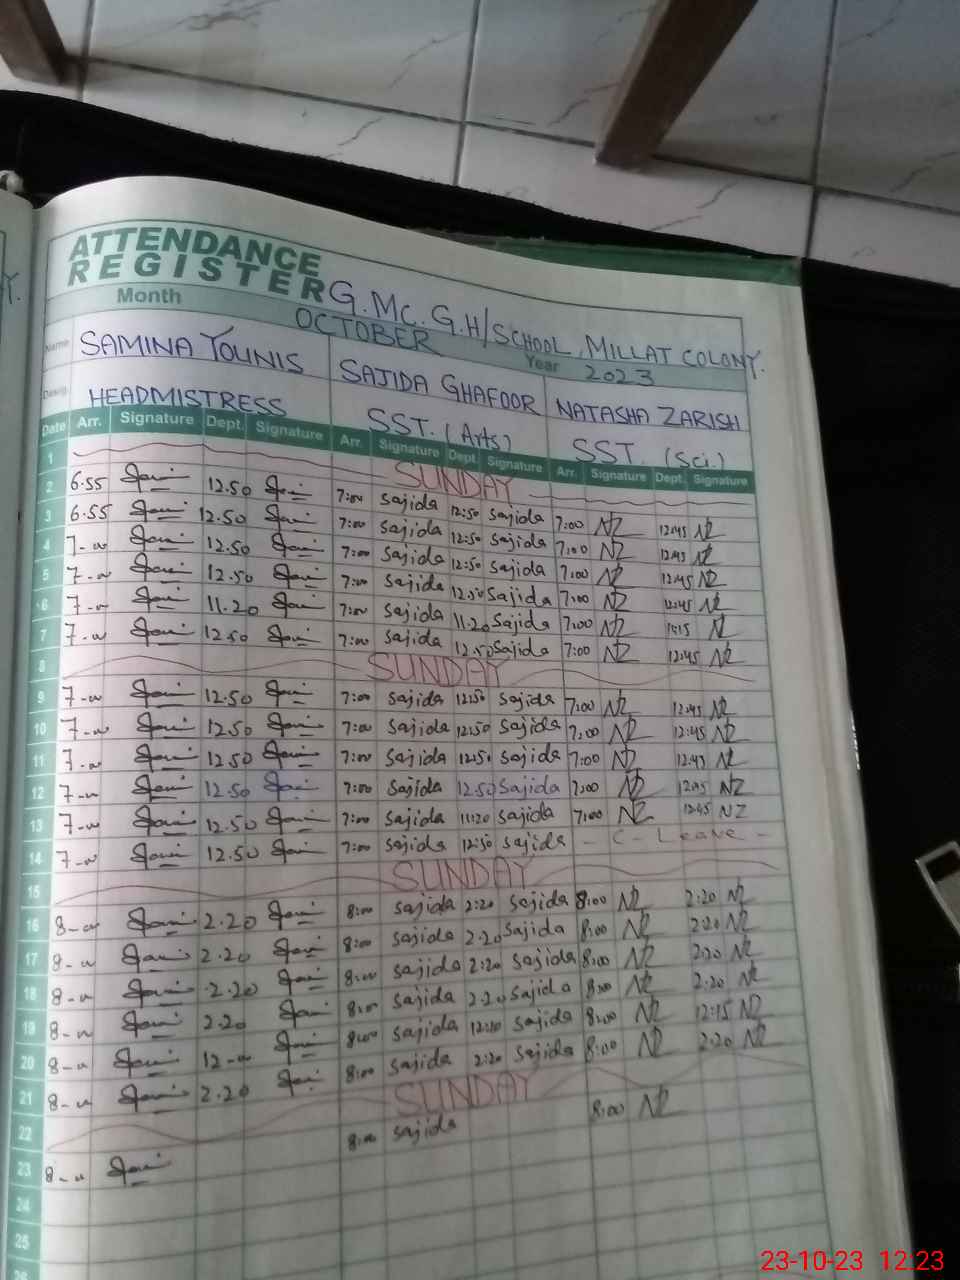 ATTENDANCE
REGISTER G.MC.G.H/SCHOOL, MILLAT COLONY.
Month OCTOBER Year 2023
Name SAMINA YOUNIS SAJIDA GHAFOOR NATASHA ZARISH
Desig. HEADMISTRESS SST. (Arts) SST. (Sci.)
Date Arr. Signature Dept. Signature Arr. Signature Dept. Signature Arr. Signature Dept. Signature
1 SUNDAY
2 6.55 12.50 7:00 Sajida 12:50 Sajida 7:00 NZ 12:45 NZ
3 6.55 12.50 7:00 Sajida 12:50 Sajida 7:00 NZ 12:45 NZ
4 7- 12.50 7:00 Sajida 12:50 Sajida 7:00 NZ 12:45 NZ
5 7- 12.50 7:00 Sajida 12:50 Sajida 7:00 NZ 12:45 NZ
6 7- 11.20 7:00 Sajida 11.20 Sajida 7:00 NZ NZ
7 7- 12.50 7:00 Sajida 12.50 Sajida 7:00 NZ 12:45 NZ
8 SUNDAY
9 7- 12.50 7:00 Sajida 12:50 Sajida 7:00 NZ 12:45 NZ
10 7- 12.50 7:00 Sajida 12:50 Sajida 7:00 NZ 12:45 NZ
11 7- 12.50 7:00 Sajida 12:50 Sajida 7:00 NZ 12:45 NZ
12 7- 12.50 7:00 Sajida 12.50 Sajida 7:00 NZ NZ
13 7- 12.50 7:00 Sajida 11:20 Sajida 7:00 NZ 12:45 NZ
14 7- 12.50 7:00 Sajida 12:50 Sajida - C - Leave -
15 SUNDAY
16 8- 2.20 8:00 Sajida 2:20 Sajida 8:00 NZ 2:20 NZ
17 8- 2.20 8:00 Sajida 2.20 Sajida 8:00 NZ 2:20 NZ
18 8- 2.20 8:00 Sajida 2:20 Sajida 8:00 NZ 2:20 NZ
19 8- 2.20 8:00 Sajida 2.20 Sajida 8:00 NZ 2:20 NZ
20 8- 12- 8:00 Sajida Sajida 8:00 NZ 12:15 NZ
21 8- 2.20 8:00 Sajida 2:20 Sajida 8:00 NZ 2:20 NZ
22 SUNDAY
23 8- 8:00 Sajida 8:00 NZ
24
25
26
23-10-23 12.23